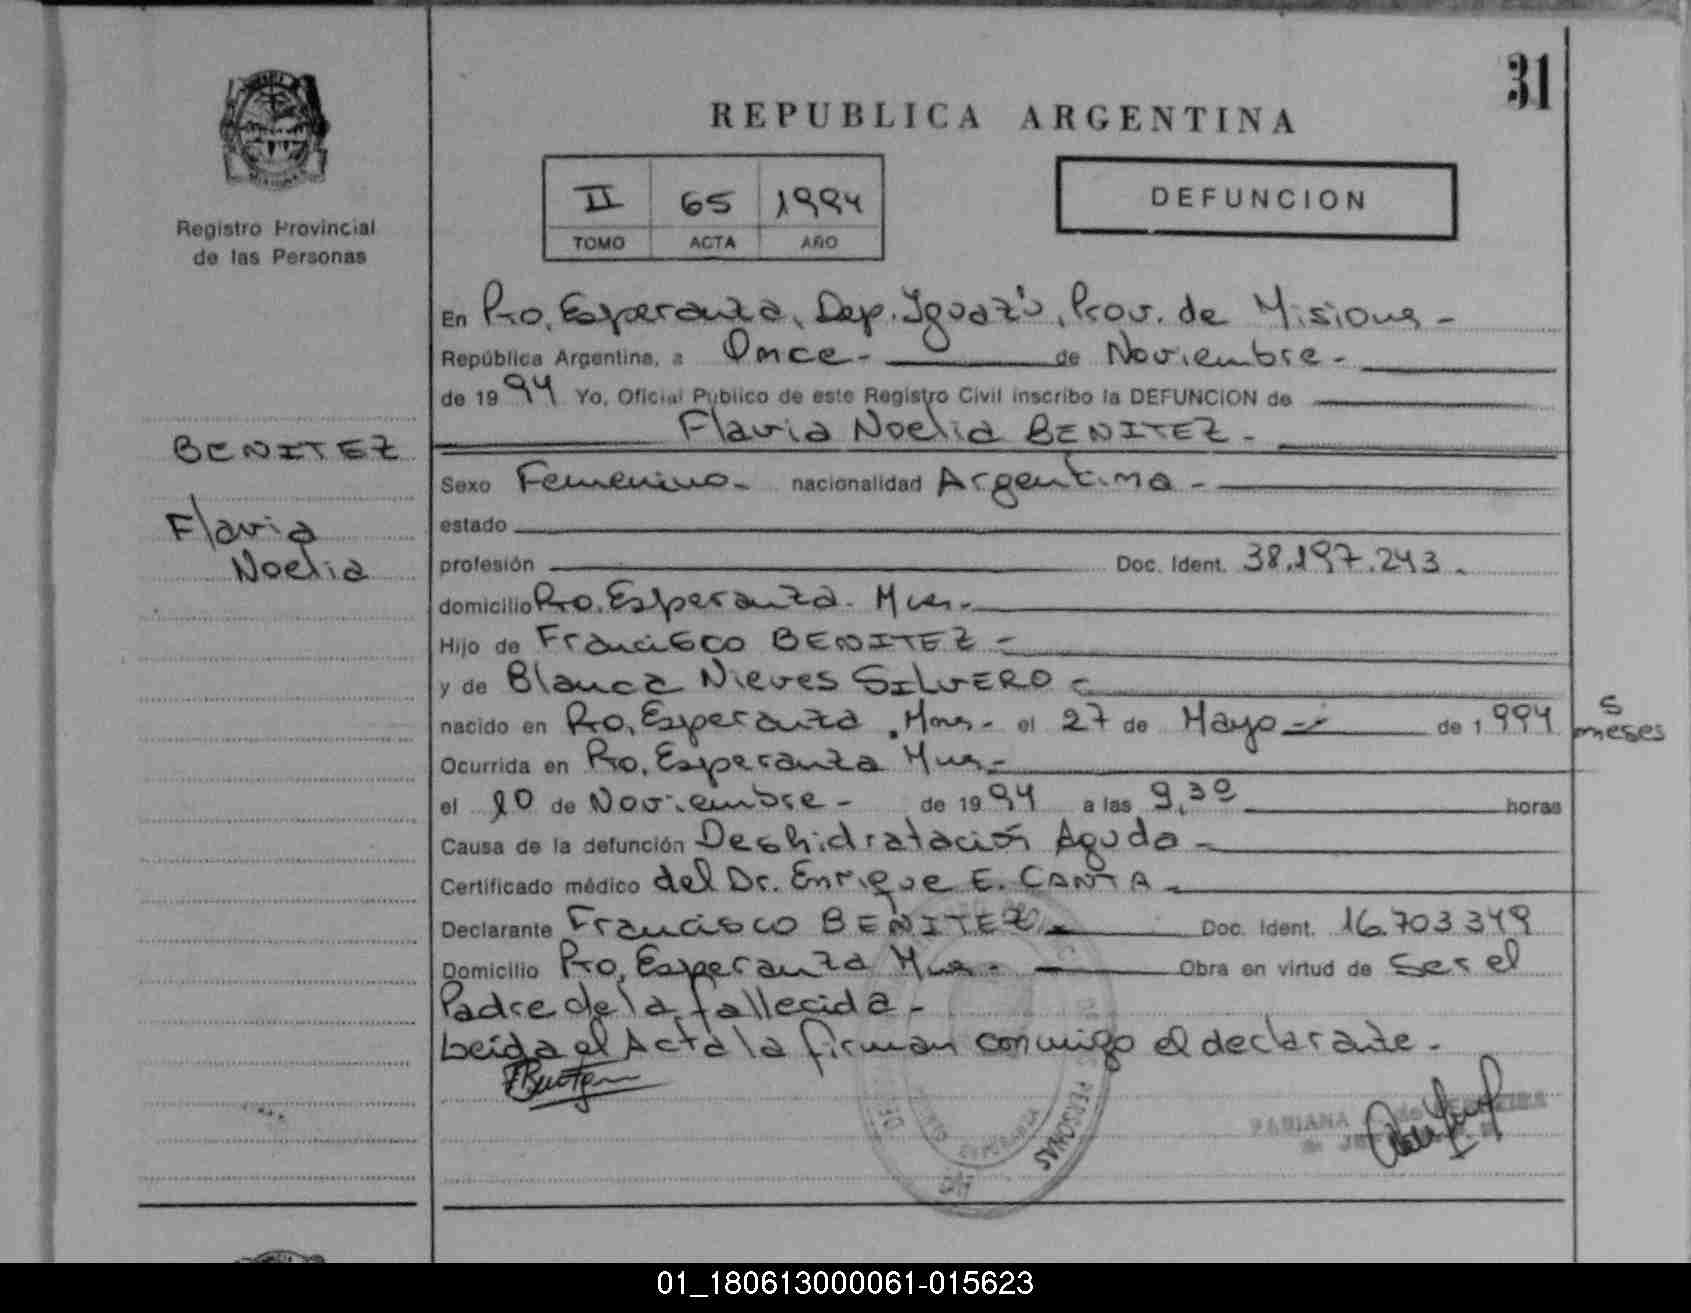 31
REPUBLICA ARGENTINA
Registro Provincial
de las Personas
II 65 1994
TOMO ACTA AÑO
DEFUNCION
En Pto. Esperanza, Dep. Iguazú, Prov. de Misiones -
República Argentina, a Once - de Noviembre -
de 1994 Yo, Oficial Público de este Registro Civil inscribo la DEFUNCION de
Flavia Noelia BENITEZ -
BENITEZ
Flavia
Noelia
Sexo Femenino - nacionalidad Argentina -
estado
profesión Doc. Ident. 38.197.243 -
domicilio Pto. Esperanza - Mnes -
Hijo de Francisco BENITEZ -
y de Blanca Nieves SILVERO -
nacido en Pto. Esperanza, Mnes - el 27 de Mayo - de 1994 5 meses
Ocurrida en Pto. Esperanza Mnes -
el 10 de Noviembre - de 1994 a las 9,30 horas
Causa de la defunción Deshidratación Aguda -
Certificado médico del Dr. Enrique E. CANTA -
Declarante Francisco BENITEZ - Doc. Ident. 16.703349
Domicilio Pto. Esperanza Mnes - Obra en virtud de Ser el
Padre de la fallecida -
Leida el Acta la firman conmigo el declarante -
PERSONAS
01_180613000061-015623